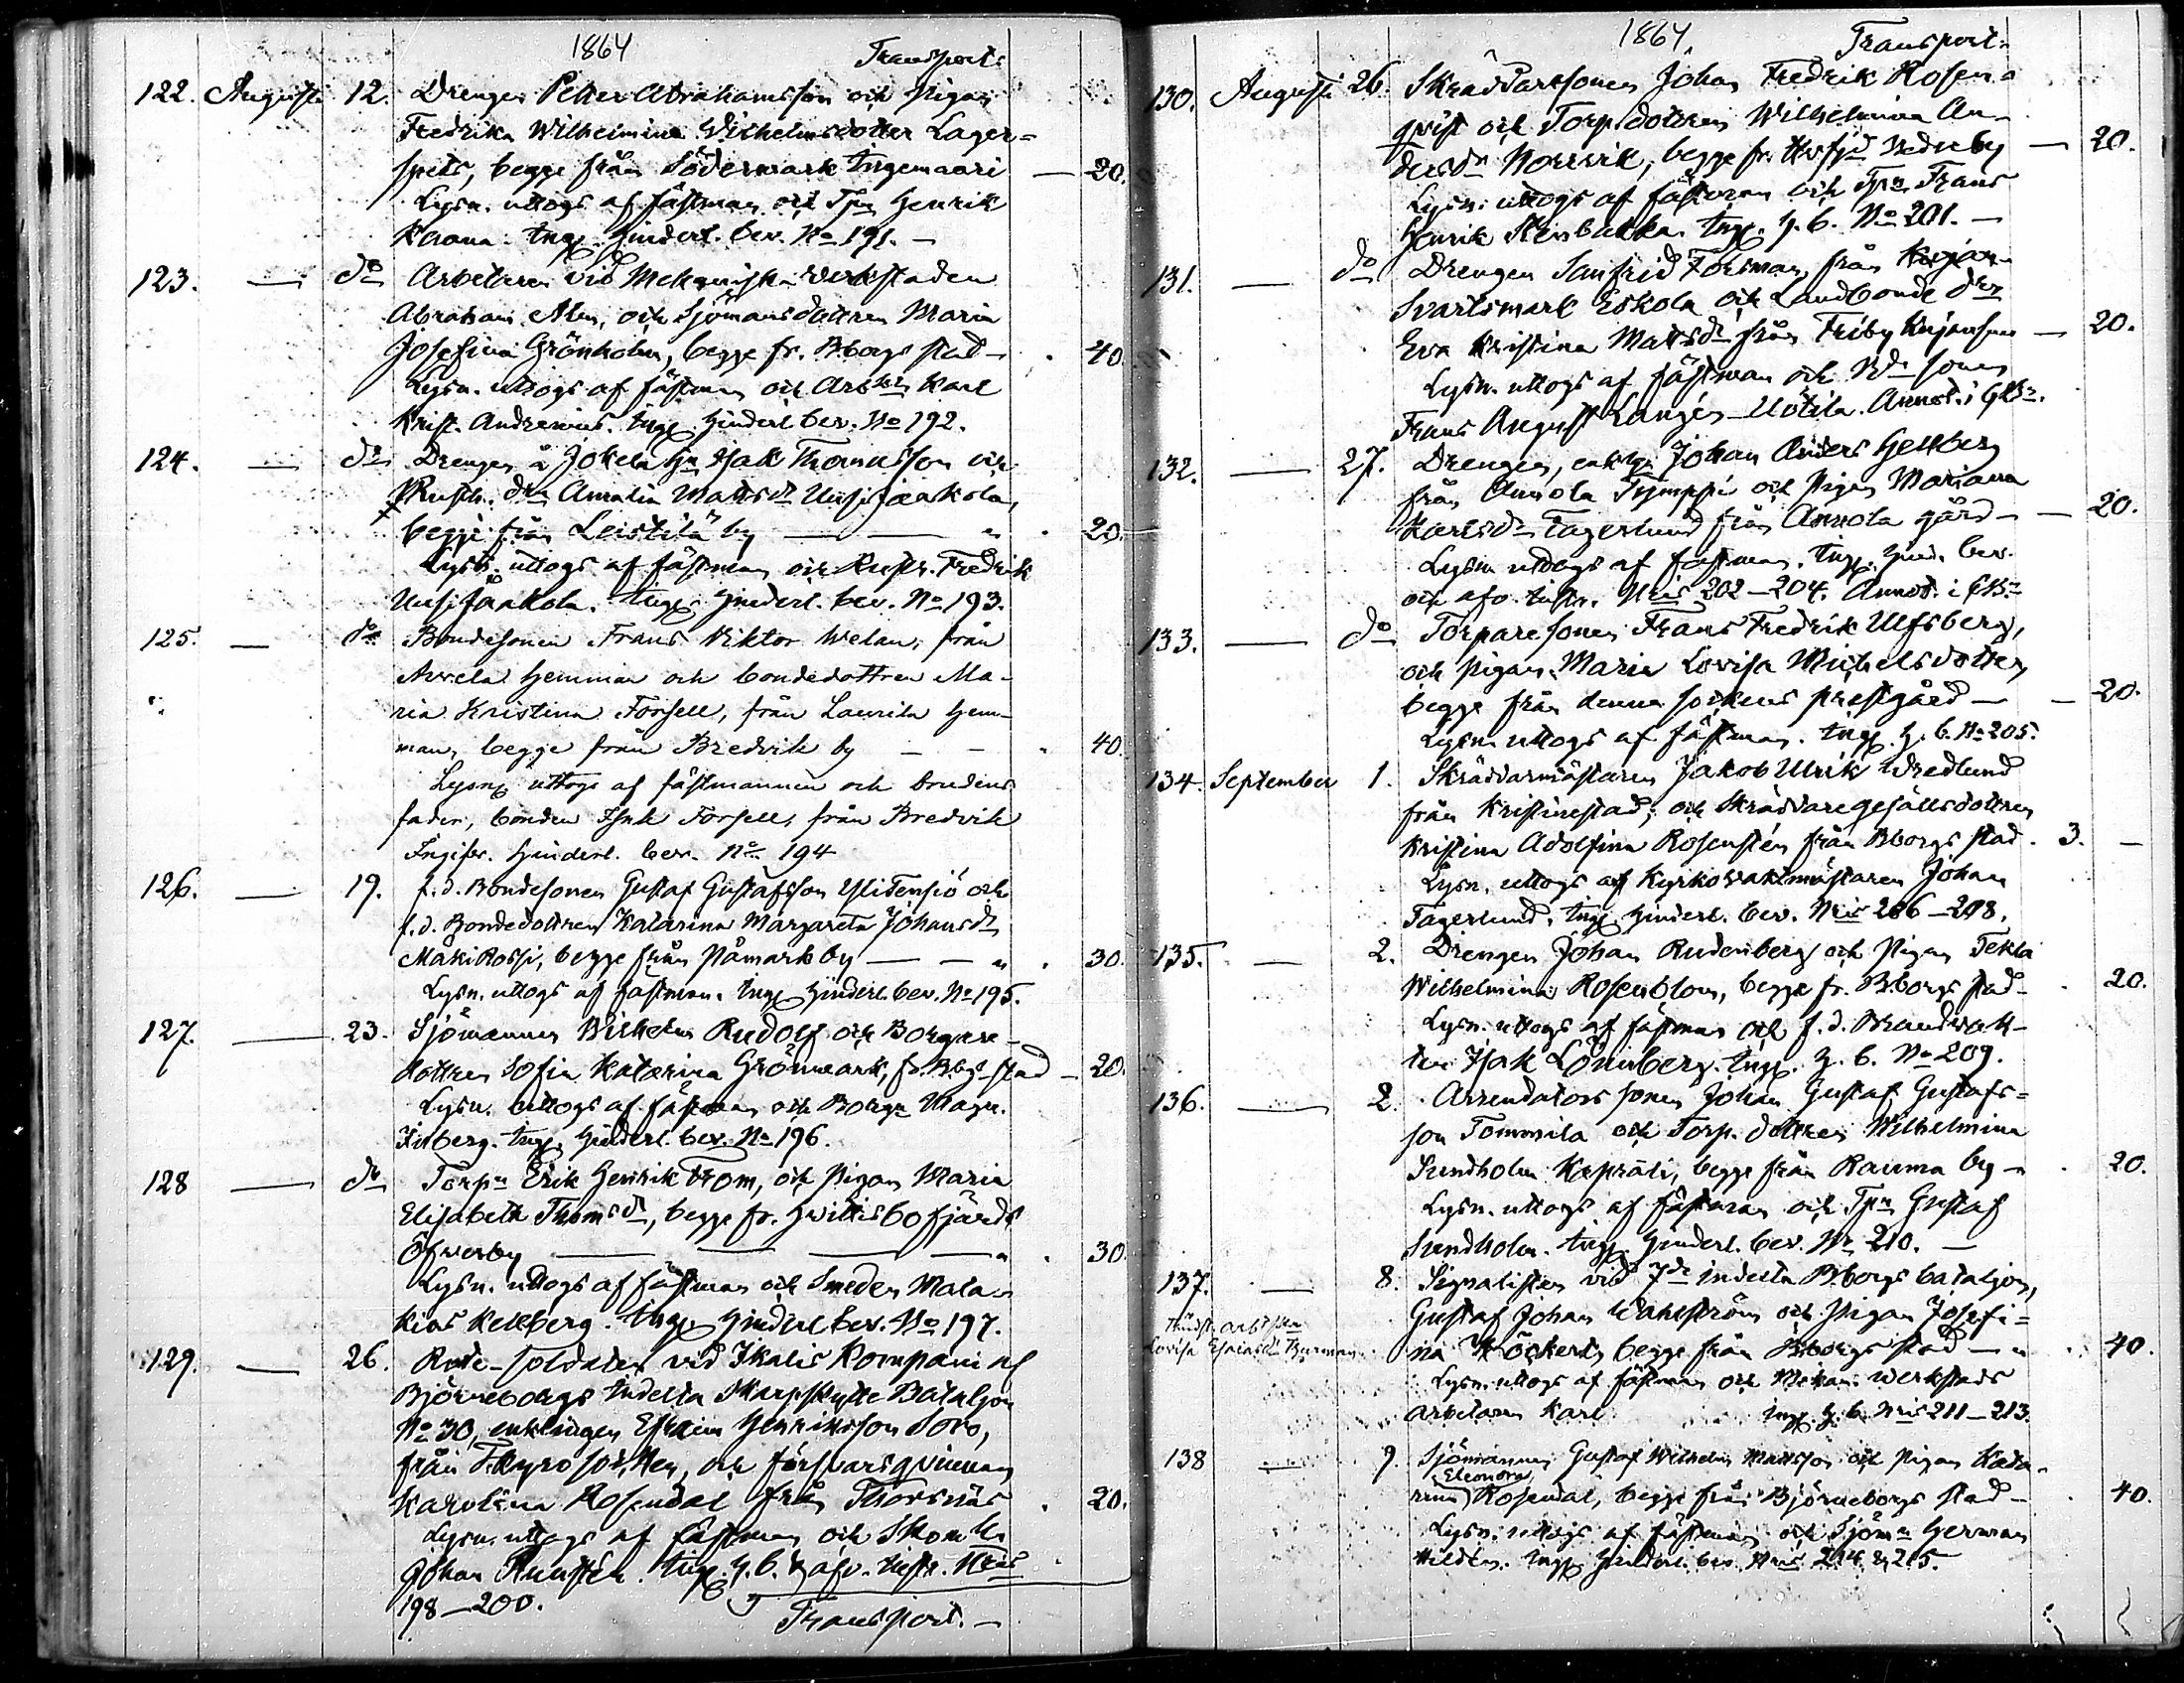 1864
Transport:
122. Augusti 12. Drengen Petter Abrahamsson och Pigan
Fredrika Wilhelmina Wilhelmsdotter Lager=
spets, begge från Södermark Ingemaari — 20.
Lysn. uttogs af fästman och Tpn Henrik
Krana. Ingt. Hinderl. bev. No 191. —
123. — do Arbetaren vid Mekaniska verkstaden
Abraham Alen, och Sjömansdottren Maria
Josefina Grönholm, begge fr. Bborgs stad — 40.
Lysn. uttogs af fästman och Arb. Karl
Krist. Andrenius. Ingt. Hinderl. bev. No 192.
124. — do Drengen å Jokela Isak Thomasson och
Rusth. dn Amalia Mattsdr Uusijaakola,
begge från Leistilä by — — " 20.
Lysn. uttogs af fästman och Rusth. Fredrik
Uusijaakola. Ingt. Hinderl. bev. No 193.
125. — do Bondesonen Frans Viktor Welan, från
Avvela hemman och bondedottren Ma-
ria Kristina Forsell, från Laurila hem-
man, begge från Bredvik by — — 40.
Lysng uttogs af fästmannen och brudens
fader, bonden Isak Forsell, från Bredvik
Ingifv. hinderl. bev. No 194
126. — 19. f.d. Bondesonen Gustaf Gustafsson Ylitensiö och
f.d. Bondedottren Katarina Margareta Johansdr
MäkiRossi, begge från Påmark by — — " 30.
Lysn. uttogs af fästman. Ingt Hinderl. bev. No 195.
127. — 23. Sjömannen Wilhelm Rudolf och Borgare-
dottren Sofia Katarina Grönmark, fr. Bbgs stad — 20.
Lysn. uttogs af fästman och Borgn Magn.
berg. Ingt. Hinderl. bev. No 196.
128 — do Torpn Erik Henrik From, och Pigan Maria
Elisabeth Thomsdr, begge fr. Hvittisbofjärds
Öfverby — — — — " 30.
Lysn. uttogs af fästman och Smeden Mala-
kias Kellberg. Ingt Hinderl bev. No 197.
129. — 26. Rote-soldaten vid Ikalis Kompani af
Björneborgs Indelta Skarpskytte Bataljon
No 30, enklingen Efraim Henriksson Soro,
från Tkyro socken, och försvarsqvinnan
Karolina Rosendal från Thorsnäs 20.
Lysn. uttogs af fästman och Skom.
Johan Runstén. Ingt. H. b. & afv. attest. Nris
198—200.
Transport. —
1864.
Transport:
130. Augusti 26. Skräddaresonen Johan Fredrik Rosen-
qvist och Torp.dottren Wilhelmina An-
dersdr Norrvik, begge fr. Hvfjd Nederby — 20.
Lysn. uttogs af fästman och Tpn Frans
Henrik Stenbacka. Ingt. H. b. No 201. —
131. — do Drengen Sanfrid Forsman, från
Svartsmark Eskola och Landbonde dr
Eva Kristina Mattsdr från Friby — 20.
Lysn. uttogs af fästman och sonen
Frans August Langén Uotila. Annot. i
132. — 27. Drengen, enkl. Johan Anders Hellberg
från Annola Tymppi och Pigan Mariana
Karlsdr Tagerlund från Annola gård — — 20.
Lysn. uttogs af fästman. Ingt. Hind. bev.
och afv. attest. Nris 202—204. Annot. i
133. — do Torparesonen Frans Fredrik Ulfsberg,
och Pigan Maria Lovisa Michelsdotter,
begge från denna sockens prestgård — — 20.
Lysn. uttogs af fästman. Ingt. H. b. No 205.
134. September 1. Skräddarmästaren Jakob Ulrik Wredlund
från Kristinestad, och Skräddaregesällsdottren
Kristina Adolfina Rosensten från Bborgs stad. 3. —
Lysn. uttogs af Kyrkovaktmästaren Johan
Tagerlund. Ingt. Hinderl. bev. Nris 206—208.
135. — 2. Drengen Johan Rudenberg och Pigan Tekla
Wilhelmina Rosenblom, begge fr. Bborgs stad — 20.
Lysn. uttogs af fästman och f.d. Brandvak-
ten Isak Lönnberg. Ingt. H. b. No 209.
136. — 2. Arrendatorssonen Johan Gustaf Gustafs=
son Tommila och Torp. dottren Wilhelmina
Sundholm Kaprali, begge från Rauma by — 20.
Lysn. uttogs af fästman och Tpn Gustaf
Sundholm. Ingt. Hinderl. bev. Nr 210. —
137. — 8. Signalisten vid 7de indelta Bborgs bataljon,
Gustaf Johan Wahlström och Pigan Josefi=
Lovisa Esaiasdr Burman
na Höckert, begge från Bborgs stad — " 40.
Lysn. uttogs af fästman och Mekan. Werkstads
arbetaren Karl Ingt. H. b. Nris 211—213.
138 — 9. Sjömannen Gustaf Wilhelm Mattsson och Pigan Kata-
Eleonora
rina Rosendal, begge från Björneborgs stad — 40.
Lysn. uttogs af fästman och Sjömn Herman
Hildén. Ingt. Hinderl. bev. Nris 214 & 215.